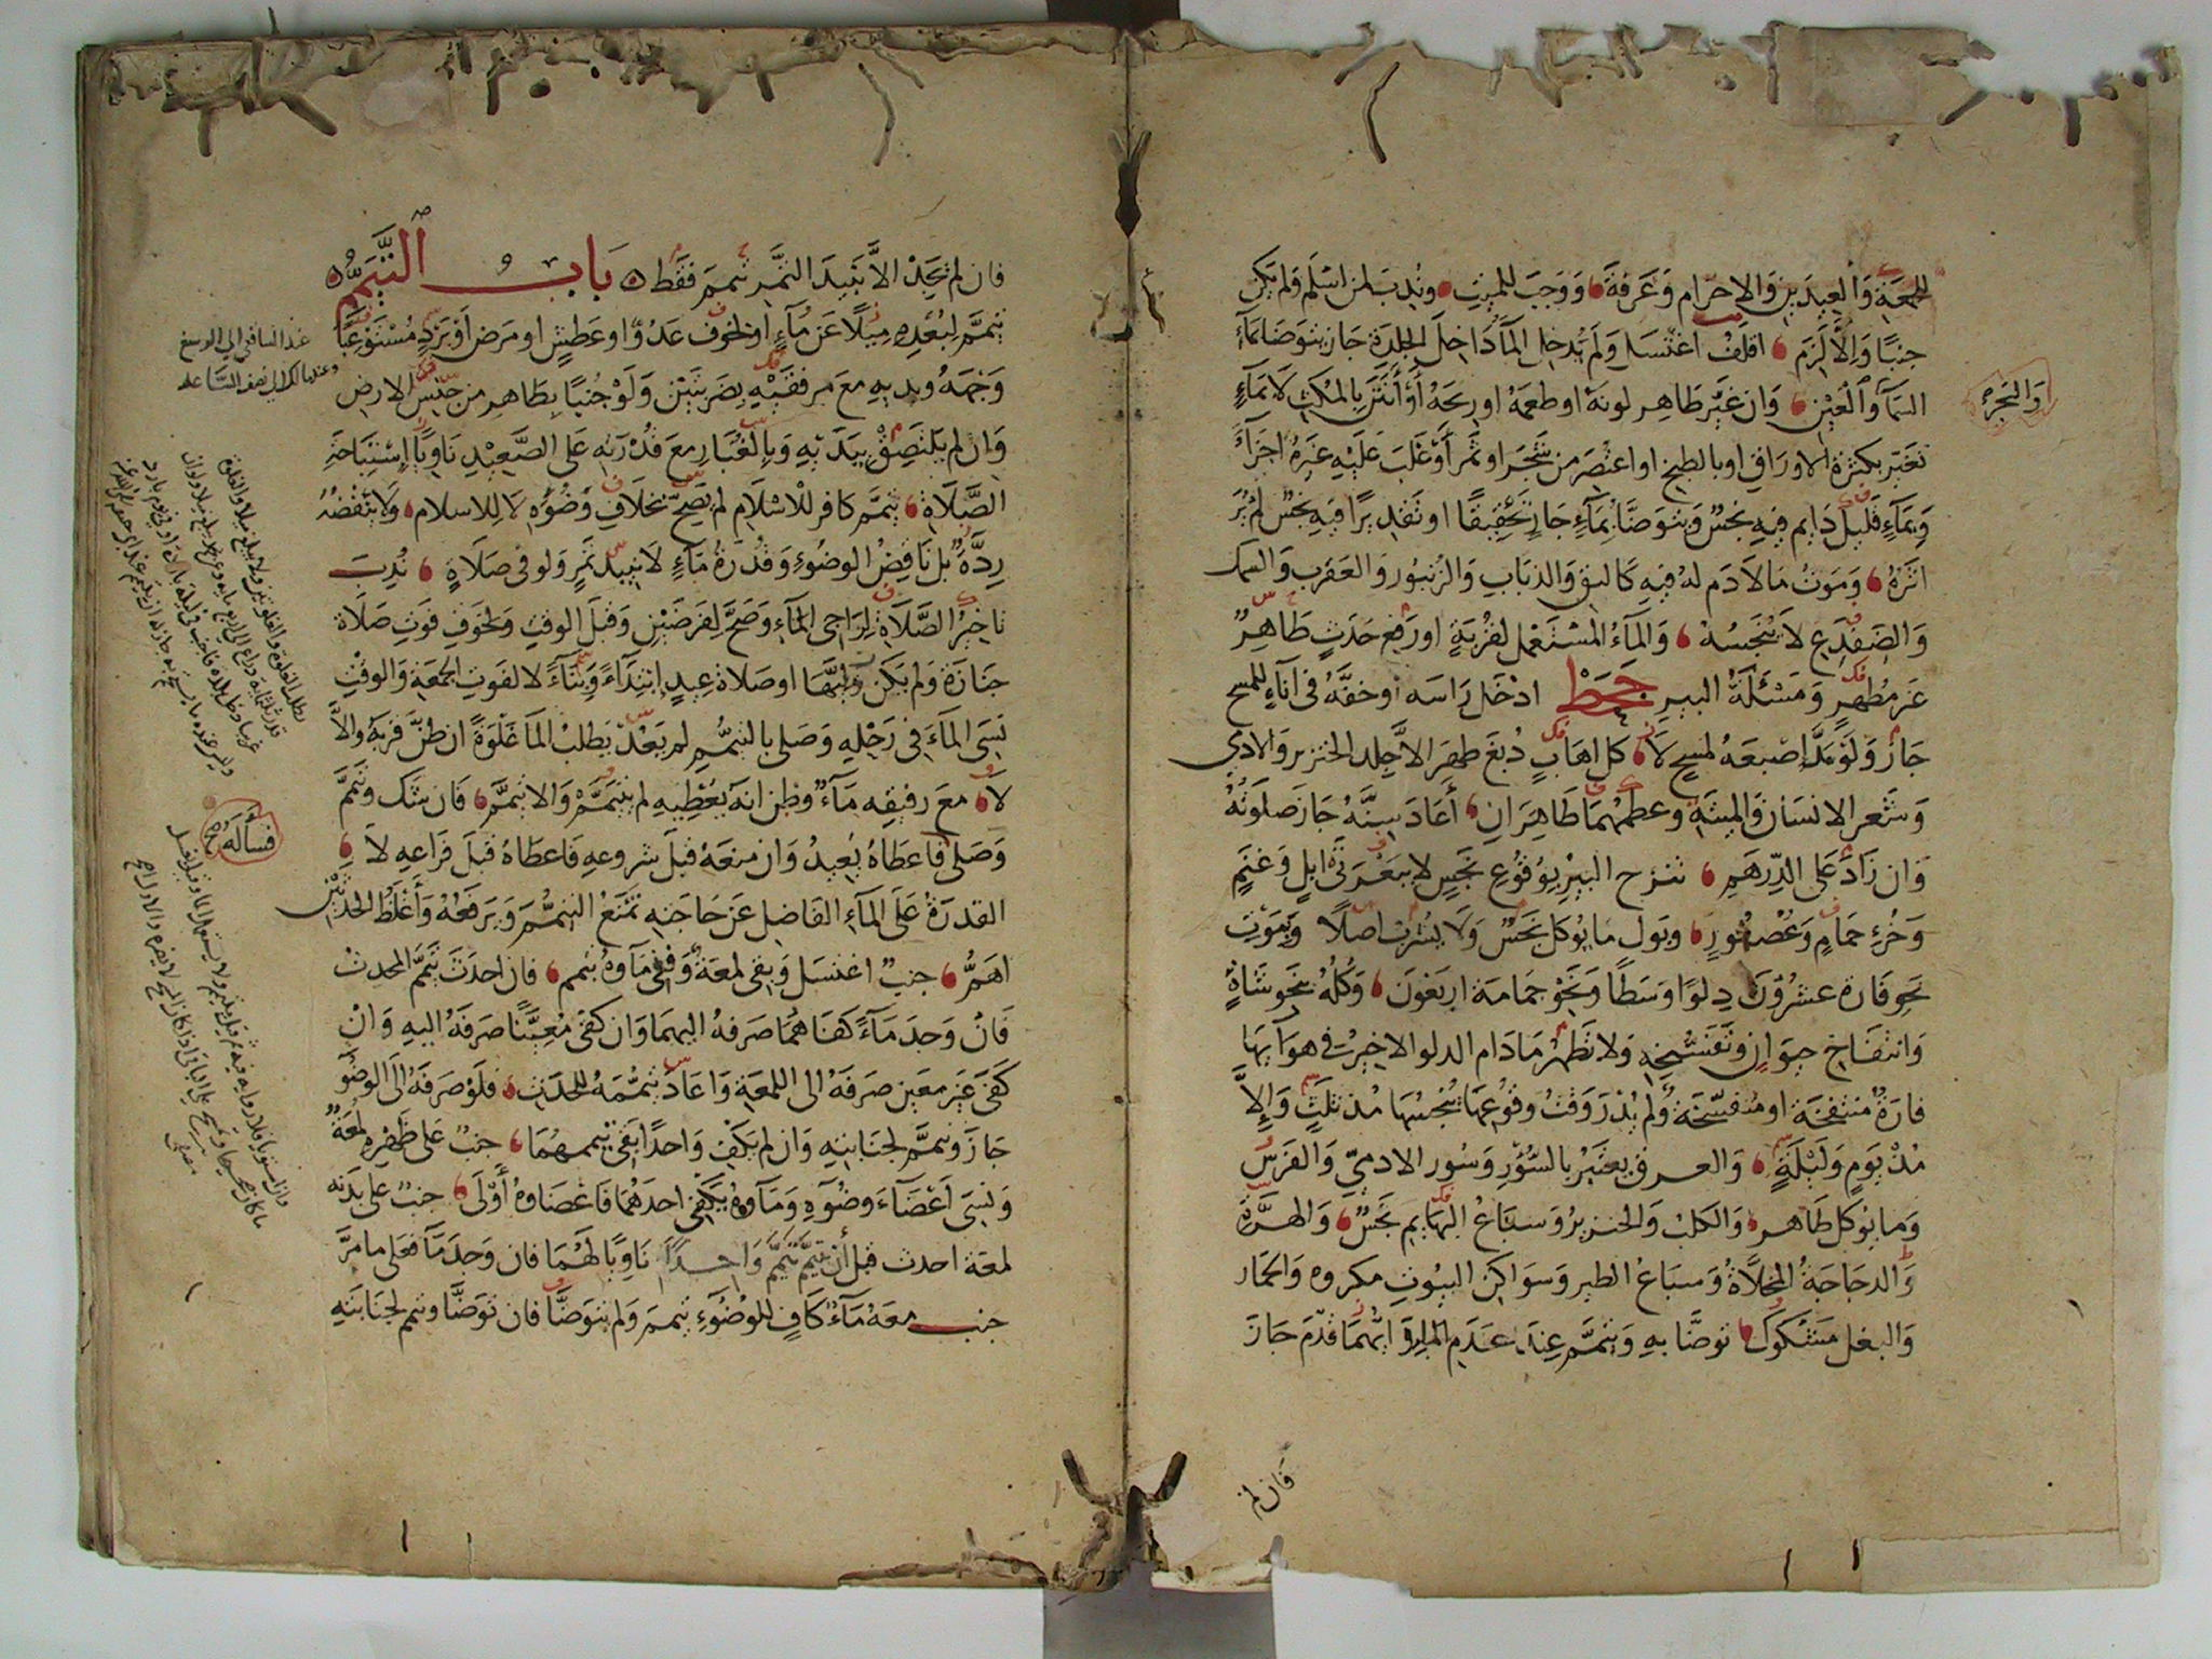 الجمعة وَالعيدين وَالاحرام وَعَرفةَ وَوَجَبَ للميت وندب لمن اسلم ولم يكن
جنبًا وَالّا لزم اقلف اغتسل وَلم يدخل الماءَ داخل الجلدة جاز يتوضا بماء
السماء وَالعين وَان غير طاهر لونه او طعمه او ريحه أو أنتن بالمكث لا بماءٍ
تغير بكثرة الاوراق او بالطبخ او اعتصر من شجر او ثمر أو غلب عليه غيره اجزاءً
وَبماءٍ قليل دَايم فيه نجس وَيتوضا بماءٍ جارٍ تحقيقا او تقديرًا فيه نجس لم يُرَ
اثرهُ وَموت مَا لا دَم له فيه كالبق وَالذباب وَالزنبور وَالعقرب وَالسمك
وَالضفدع لا ينجسه وَالماءُ المستعمل لقربةٍ او رفع حدثٍ طاهرٌ
غير مُطهرٍ وَمَسْئَلة البير جحط ادخل رَاسَه او خفَّه في اناءٍ للمسح
جَازَ وَلَوْ يدًا اصبعهُ لمسح لا كل اهابٍ دُبغ طهر الا جلد الخنزير وَالادمي
وَشعر الانسان وَالميتة وعظمهما طاهران أعَادَ سِنَّهُ جاز صلوته
وَان زادَ على الدّرهم تنزح البير بوقوع نجسٍ لا ببعرتي ابل وَغنم
وَخرءِ حمام وَعُصفور وبول ما يُوكل نجس وَلا يشرب اصلًا وَبموت
نحو فارة عشرُونَ دلوًا وَسَطًا وَنحو حَمامة اربَعُونَ وَكُلُّهُ بنحو شاةٍ
وَانتفاخ حيوان وَتفسّخه وَلا تطهر مَا دَام الدلو الاخير في هوائها
فارةٌ منتفخة او متفسّخة وَلم يُدر وَقتُ وقوعها تُنجسها مذ ثلثٍ وَإلّا
مُذْ يَومٍ وَلَيْلَةٍ وَالعرق يعتبر بالسُّؤر وَسُور الادميّ وَالفرس
وَما يوكل طاهر وَالكلب وَالخنزير وَسباعُ البهايم نجسٌ وَالهرّة
وَالدجاجةُ المخلّاةُ وَسباعُ الطير وَسواكن البيوت مكروه وَالحمار
وَالبغل مَشكوك توضّا به وَيتمم عند عَدَم الماء وَايهما قدّم جاز
اوَ النجرة
فان لم
فان لم يَجِدْ الّا نبيذَ التَّمر تيمم فقط بَابُ التَّيَمُّمِ
تيمّم لبُعْده ميلًا عَن ماءٍ او لخوف عدُوٍّ او عطشٍ او مرض أو بردٍ مستوعبًا
وَجهَهُ ويديه معَ مرفقَيْهِ بضربتَيْن وَلَوْ جُنبًا بطاهرٍ من جنس الارض
وَان لم يلتصق بيدَيْهِ وَبالغُبارِ معَ قدْرته على الصَّعيد ناويًا إستباحة
الصَّلاةِ تيمّم كافر للاسلام لم يصحّ بخلاف وضُوءه لا للاسلام وَلا ينقضهُ
رِدَّةٌ بل ناقضُ الوضوءِ وَقدرةُ ماءٍ لا نبيذ تمرٍ ولو في صَلاةٍ نُدِبَ
تاخيرُ الصَّلاة لراجي الماءِ وَصحّ لفرضَيْن وَقبل الوقت وَلخوف فوت صلاة
جنازة وَلم يكن وليَّها او صلاة عيدٍ ابتداءً وَبناءً لا لفوت الجمعة وَالوقت
نسي الماءَ في رَحْلهِ وَصلى بالتيمُّم لم يعدْ يَطلبُ الماءَ غلْوَةً ان ظنَّ قربهُ والّا
لا معَ رفيقه مَاءٌ وظن انهُ يُعْطيهِ لم يتيمَّمْ وَالا تيمَّم فان شكّ وتيمّم
وَصلى فاعطاهُ يُعيدُ وَان منعهُ قبلَ شروعهِ فاعطاهُ قبل فَراغهِ لا
القدرةُ على الماءِ الفاضل عن حاجته تمنعُ التيمُّم وَيرفعُهُ وَأغلظُ الحدثَيْن
اهمُّ جنبٌ اغتسل وَبقي لمعةٌ وَفني ماوهُ تيمم فان احدث تيمّم للحدث
فان وجد ماءً كفاهما صرفهُ اليهما وَان كفى مُعيَّنًا صرفهُ اليه وَانْ
كفى غير معين صرفهُ الى اللمعة وَاعاد تيمُّمهُ للحدث فلو صرفه الى الوضو
جَازَ وتيمَّم لجنابته وَان لم يكف وَاحدًا بقي تيممهُما جنبٌ على ظهره لمعةٌ
وَنسي اعْضاءَ وضوئهِ وَماوهُ يكفي احدهُما فاعضاوهُ أوْلَى جنبٌ على بدنه
لمعة احدث قبل أن تيمّم تيمّم وَاحدًا ناويًا لهما فان وَجد ماءً فعلى ما مرّ
جنب معهُ ماءٌ كافٍ للوُضوءِ تيمم وَلم يتوضّا فان توضّا وتيمم لجنابته
عند الشافعي الى الرسغ
وعند مالك الى نصف الساعد
فسأله